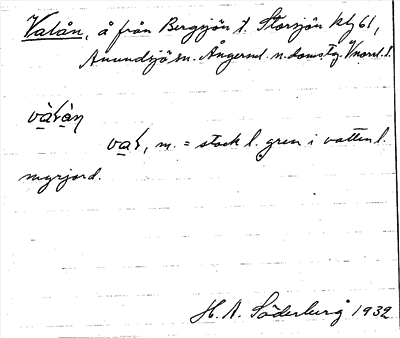 Valån, å från Bergsjön t. Storsjön kbl 61,
Anundsjö sn. Ångerml. n. doms. Vnorrl. l.
vàl̀àn
val, m. = stock l. gren i vatten l.
myrjord.
H. A. Söderberg 1932